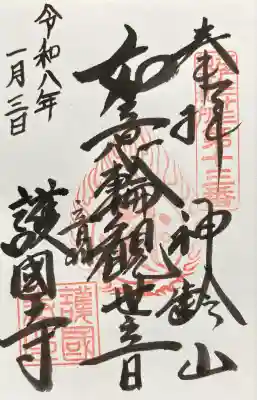 奉拝 神齢山
如意輪観世音
護國寺
令和八年
一月三日
第十三番
護國